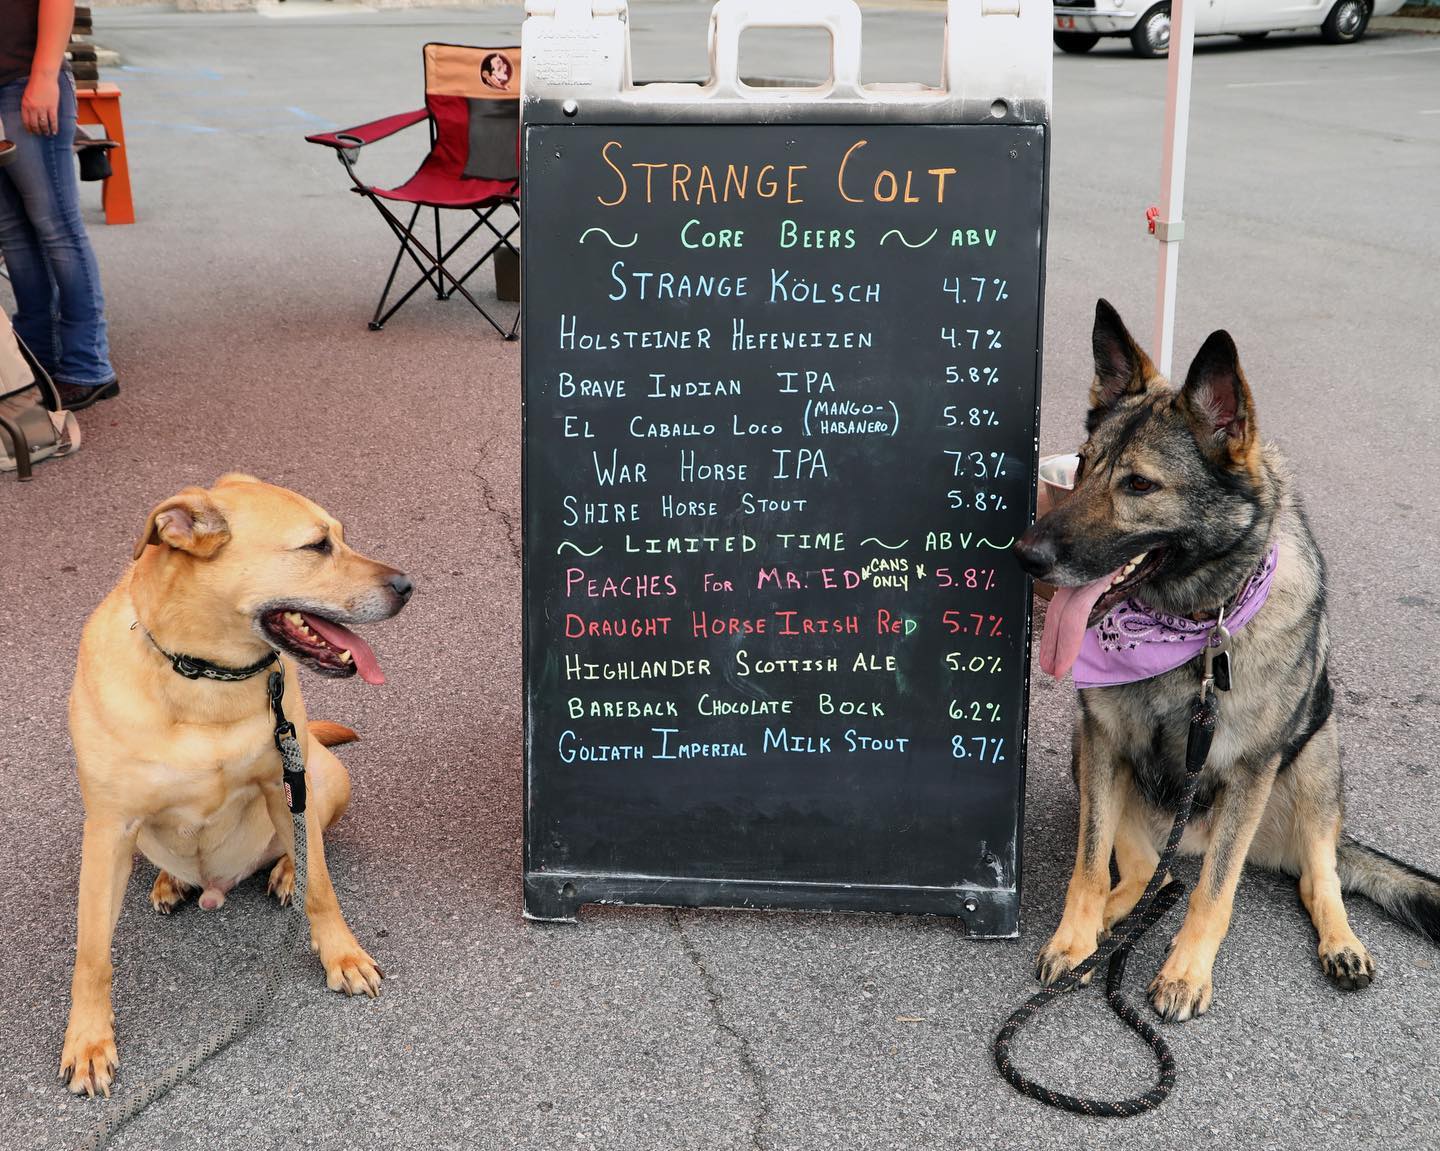 STRANGE COLT
~ CORE BEERS ~ ABV
STRANGE KÖLSCH 4.7%
HOLSTEINER HEFEWEIZEN 4.7%
BRAVE INDIAN IPA 5.8%
EL CABALLO LOCO (MANGO-HABANERO) 5.8%
WAR HORSE IPA 7.3%
SHIRE HORSE STOUT 5.8%
~ LIMITED TIME ~ ABV ~
PEACHES FOR MR. ED *CANS ONLY* 5.8%
DRAUGHT HORSE IRISH RED 5.7%
HIGHLANDER SCOTTISH ALE 5.0%
BAREBACK CHOCOLATE BOCK 6.2%
GOLIATH IMPERIAL MILK STOUT 8.7%